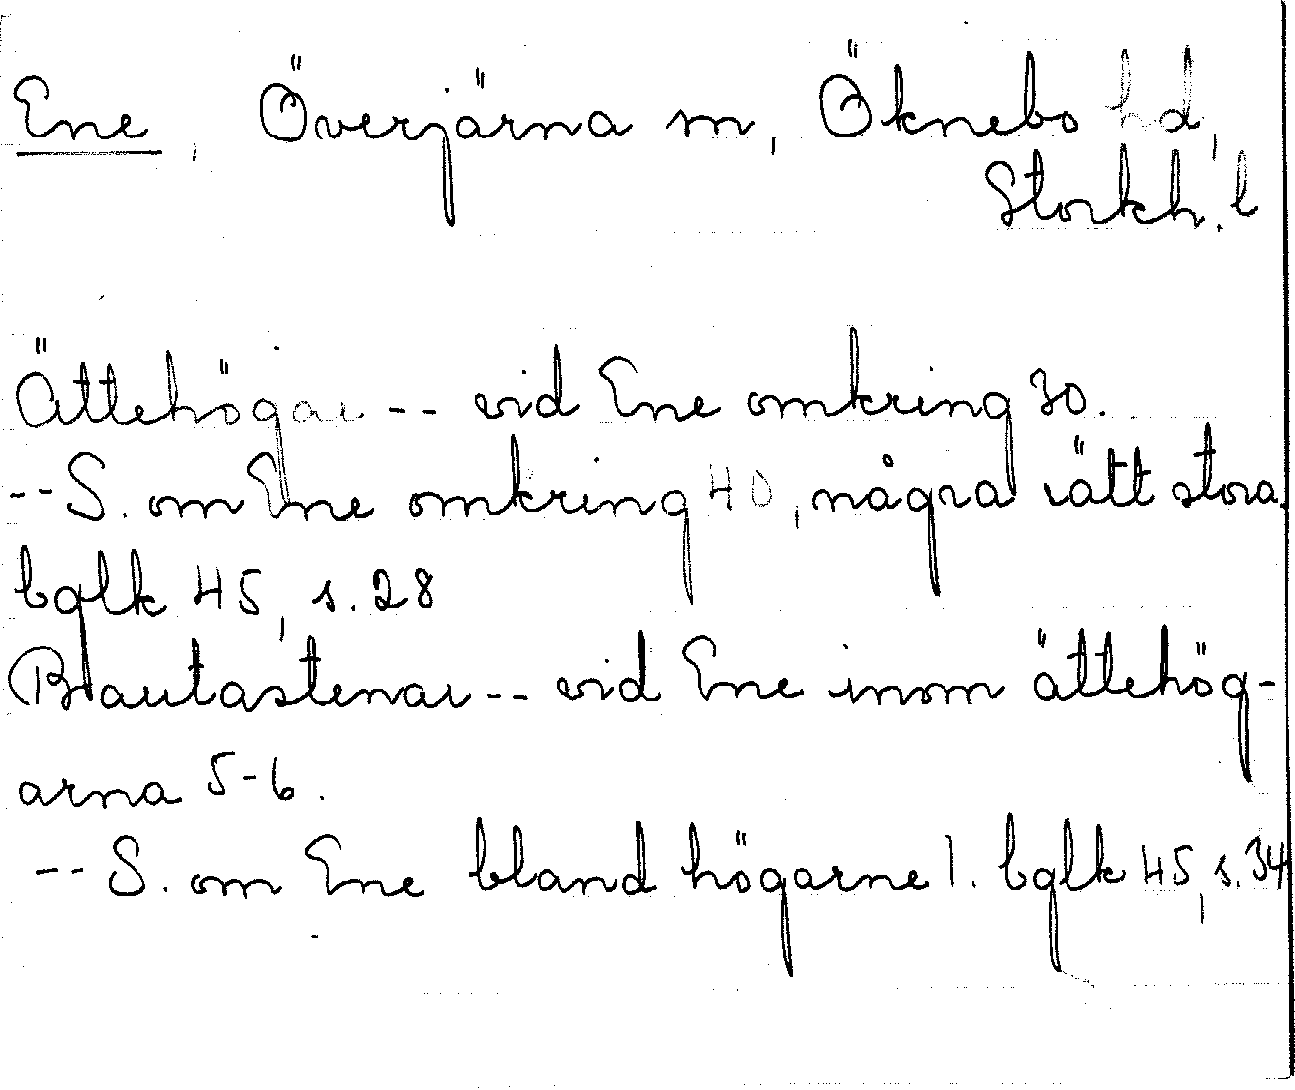 Ene, Överjärna sn, Öknebo hd,
Stockh. l
Ättehögar -- vid Ene omkring 30.
-- S. om Ene omkring 40, några rätt stora.
bglk 45, s. 28
Brautastenar -- vid Ene inom ättehög-
arna 5-6.
-- S. om Ene bland högarne 1. bglk 45, s. 34